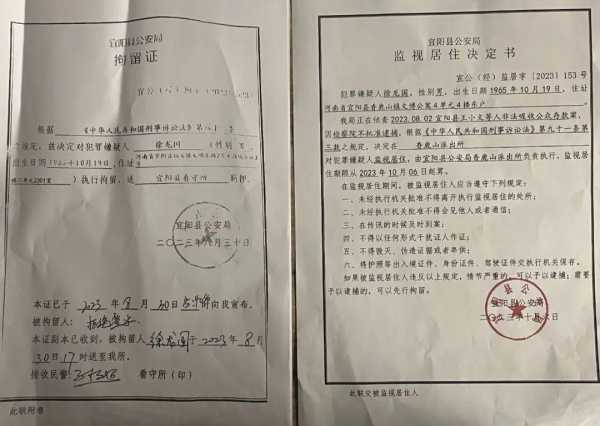 宜阳县公安局
拘留证
根据《中华人民共和国刑事诉讼法》第八十条
之规定，兹决定对犯罪嫌疑人 徐龙川（性别男，
出生日期1965年10月19日，住址
）执行拘留，送 宜阳县看守所 羁押。
宜阳县公安局
二〇二三年八月三十日
本证已于2023年8月30日 向我宣布。
被拘留人：
本证副本已收到，被拘留人徐龙国于2023年8月
30日17时送至我所。
接收民警 看守所（印）
此联附卷
宜阳县公安局
监视居住决定书
宜公（经）监居字〔2023〕153号
犯罪嫌疑人徐龙国，性别男，出生日期1965年10月19日，住址
河南省宜阳县香鹿山镇文博公寓4单元4楼东户
我局正在侦查2023.08.02宜阳县王小文等人非法吸收公众存款案，
因检察院不批准逮捕，根据《中华人民共和国刑事诉讼法》第九十一条第
三款之规定，决定在 香鹿山派出所
对犯罪嫌疑人监视居住，由宜阳县公安局香鹿山派出所负责执行，监视居
住期限从2023年10月06日起算。
在监视居住期间，被监视居住人应当遵守下列规定：
一、未经执行机关批准不得离开执行监视居住的处所；
二、未经执行机关批准不得会见他人或者通信；
三、在传讯的时候及时到案；
四、不得以任何形式干扰证人作证；
五、不得毁灭、伪造证据或者串供；
六、将护照等出入境证件、身份证件、驾驶证件交执行机关保存。
如果被监视居住人违反以上规定，情节严重的，可以予以逮捕；需要
予以逮捕的，可以先行拘留。
宜阳县公安局
二〇二三年十月六日
此联交被监视居住人